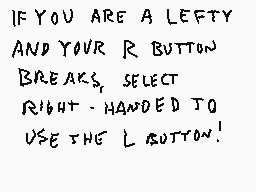 IF YOU ARE A LEFTY
AND YOUR R BUTTON
BREAKS, SELECT
RIGHT-HANDED TO
USE THE L BUTTON!